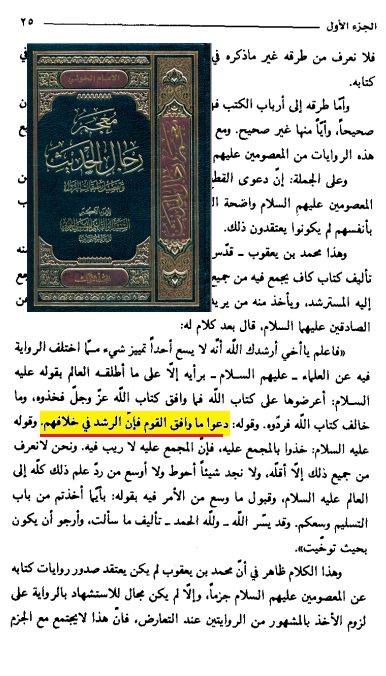 الجزء الأول ٢٥
فلا نعرف من طرقه غير ماذكره في
كتابه.
وأمّا طرقه إلى أرباب الكتب
صحيحاً، وأيّاً منها غير صحيح. ومع
هذه الروايات من المعصومين عليهم
وعلى الجملة: إنّ دعوى القطع
المعصومين عليهم السلام واضحة
بأنفسهم لم يكونوا يعتقدون ذلك.
وهذا محمد بن يعقوب ـ قدّس
تأليف كتاب كاف يجمع فيه من جميع
إليه المسترشد، ويأخذ منه من يريد
الصادقين عليهما السلام، قال بعد كلام له:
الإمام الخوئي
معجم
رجال الحديث
«فاعلم ياأخي أرشدك اللّه أنّه لا يسع أحداً تمييز شيء ممّا اختلف الرواية
فيه عن العلماء ـ عليهم السلام ـ برأيه إلّا على ما أطلقه العالم بقوله عليه
السلام: أعرضوها على كتاب اللّه فما وافق كتاب اللّه عزّ وجلّ فخذوه، وما
خالف كتاب اللّه فردّوه. وقوله: دعوا ما وافق القوم فإنّ الرشد في خلافهم. وقوله
عليه السلام: خذوا بالمجمع عليه، فإنّ المجمع عليه لا ريب فيه. ونحن لانعرف
من جميع ذلك إلّا أقلّه، ولا نجد شيئاً أحوط ولا أوسع من ردّ علم ذلك كلّه إلى
العالم عليه السلام، وقبول ما وسع من الأمر فيه بقوله: بأيّها أخذتم من باب
التسليم وسعكم. وقد يسّر اللّه ـ وللّه الحمد ـ تأليف ما سألت، وأرجو أن يكون
بحيث توخّيت».
وهذا الكلام ظاهر في أنّ محمد بن يعقوب لم يكن يعتقد صدور روايات كتابه
عن المعصومين عليهم السلام جزماً، وإلّا لم يكن مجال للاستشهاد بالرواية على
لزوم الأخذ بالمشهور من الروايتين عند التعارض، فانّ هذا لايجتمع مع الجزم